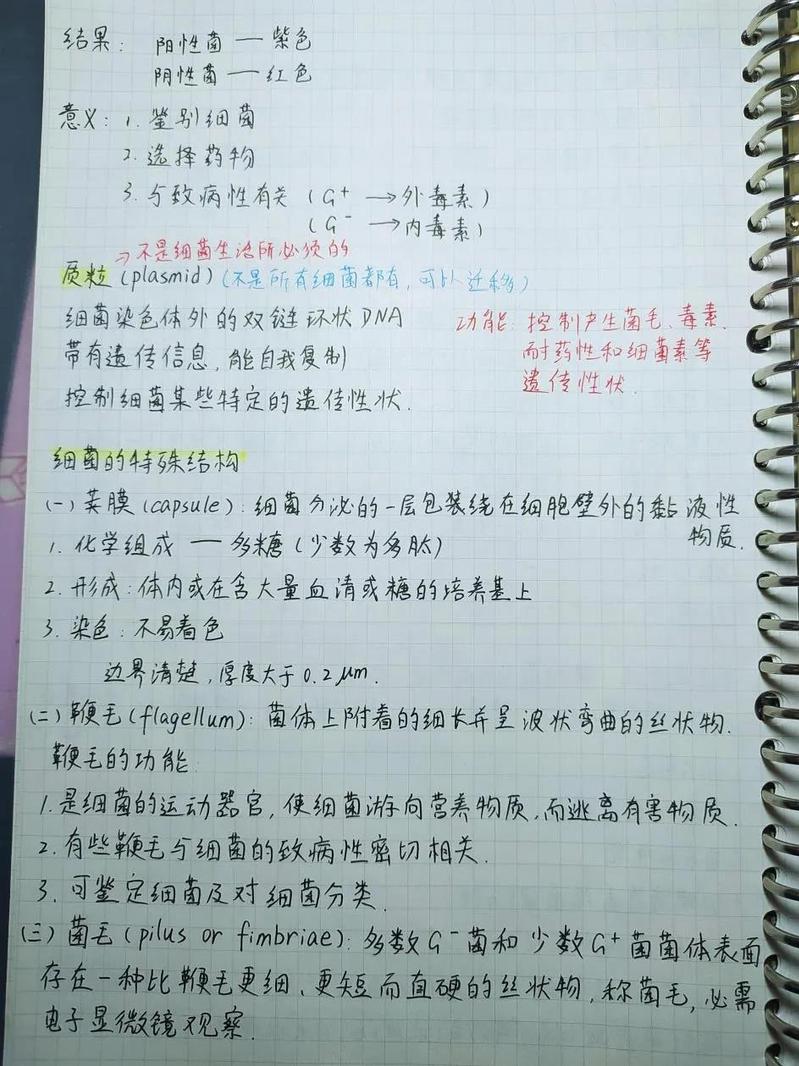 结果： 阳性菌 — 紫色
阴性菌 — 红色
意义：1. 鉴别细菌
2. 选择药物
3. 与致病性有关（G⁺ →外毒素）
（G⁻ →内毒素）
→不是细菌生活所必须的
质粒（plasmid）（不是所有细菌都有，可以迁移）
细菌染色体外的双链环状DNA
带有遗传信息，能自我复制
控制细菌某些特定的遗传性状.
功能：控制产生菌毛、毒素、
耐药性和细菌素等
遗传性状.
细菌的特殊结构
(一) 荚膜(capsule)：细菌分泌的一层包装绕在细胞壁外的黏液性
物质.
1. 化学组成 — 多糖（少数为多肽）
2. 形成：体内或在含大量血清或糖的培养基上
3. 染色：不易着色
边界清楚，厚度大于0.2μm.
(二) 鞭毛(flagellum)：菌体上附着的细长并呈波状弯曲的丝状物.
鞭毛的功能：
1. 是细菌的运动器官，使细菌游向营养物质，而逃离有害物质.
2. 有些鞭毛与细菌的致病性密切相关.
3. 可鉴定细菌及对细菌分类.
(三) 菌毛(pilus or fimbriae)：多数G⁻菌和少数G⁺菌菌体表面
存在一种比鞭毛更细、更短而直硬的丝状物，称菌毛，必需
电子显微镜观察.